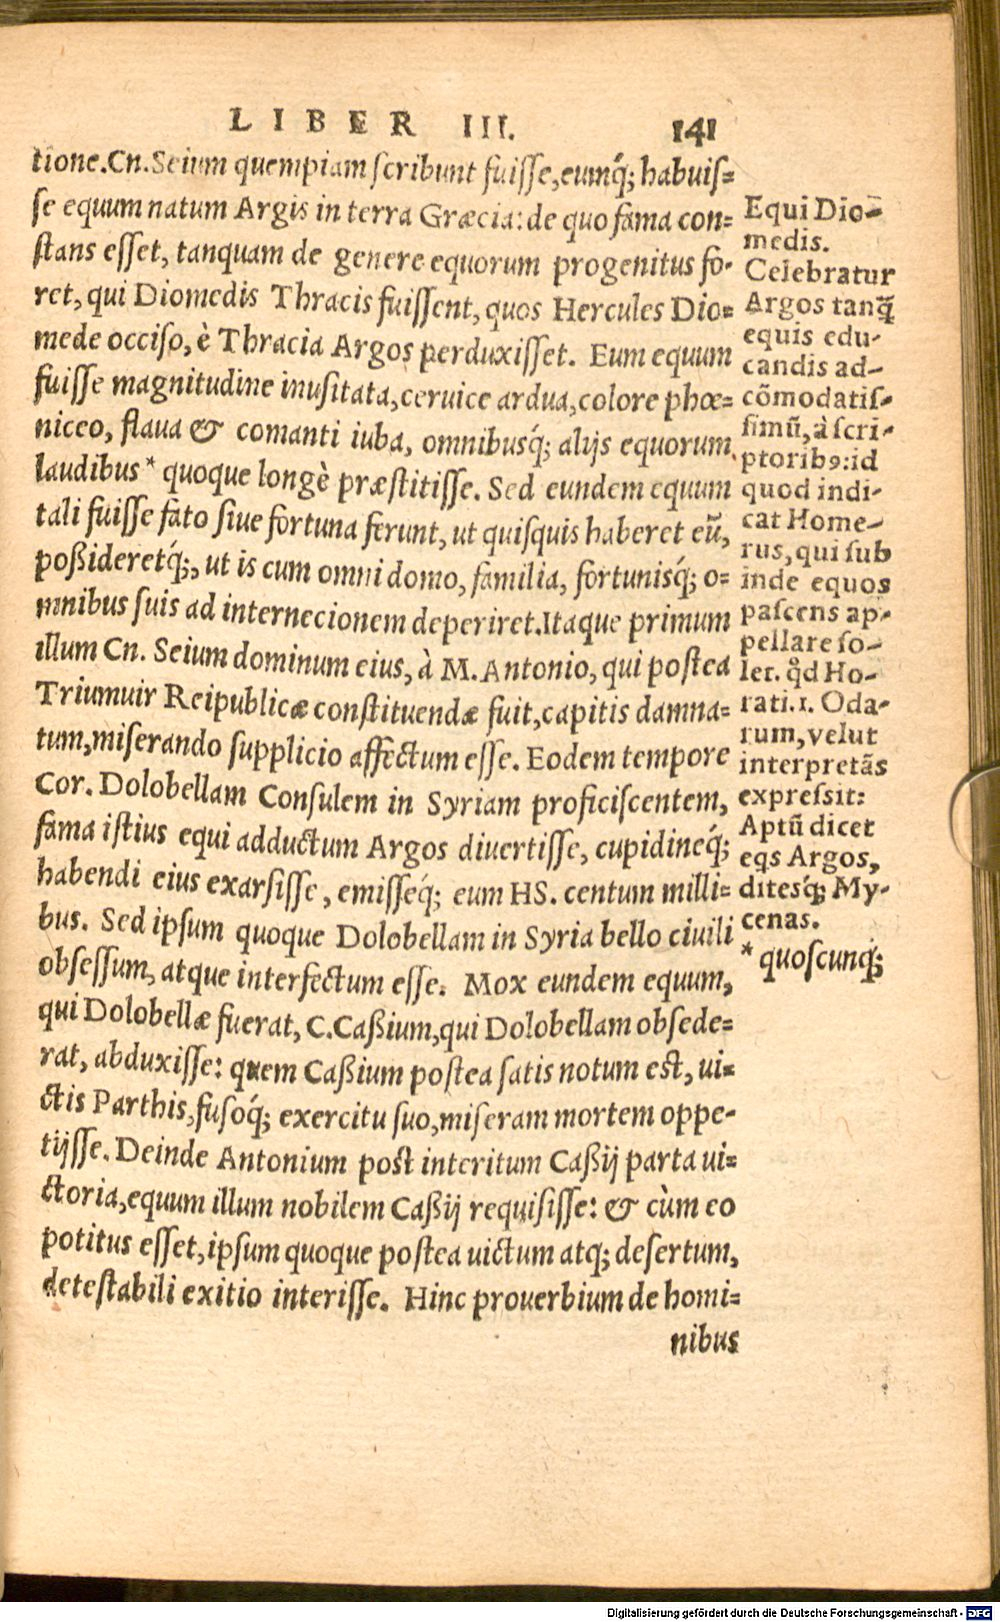 LIBER III. 141
tione. Cn. Seium quempiam scribunt fuisse, eumq́; habuis=
se equum natum Argis in terra Græcia: de quo fama con=
stans esset, tanquam de genere equorum progenitus fo-
ret, qui Diomedis Thracis fuissent, quos Hercules Dio=
mede occiso, è Thracia Argos perduxisset. Eum equum
fuisse magnitudine inusitata, ceruice ardua, colore phœ=
niceo, flaua & comanti iuba, omnibusq́; alijs equorum
laudibus * quoque longè præstitisse. Sed eundem equum
tali fuisse fato siue fortuna ferunt, ut quisquis haberet eū,
poßideretq́;, ut is cum omni domo, familia, fortunisq́; o=
mnibus suis ad internecionem deperiret. Itaque primum
illum Cn. Seium dominum eius, à M. Antonio, qui postea
Triumuir Reipublicæ constituendæ fuit, capitis damna=
tum, miserando supplicio affectum esse. Eodem tempore
Cor. Dolobellam Consulem in Syriam proficiscentem,
fama istius equi adductum Argos diuertisse, cupidineq́;
habendi eius exarsisse, emisseq́; eum HS. centum milli=
bus. Sed ipsum quoque Dolobellam in Syria bello ciuili
obsessum, atque interfectum esse. Mox eundem equum,
qui Dolobellæ fuerat, C. Caßium, qui Dolobellam obsede=
rat, abduxisse: quem Caßium postea satis notum est, ui=
ctis Parthis, fusoq́; exercitu suo, miseram mortem oppe-
tijsse. Deinde Antonium post interitum Caßij parta ui=
ctoria, equum illum nobilem Caßij requisisse: & cùm eo
potitus esset, ipsum quoque postea uictum atq; desertum,
detestabili exitio interisse. Hinc prouerbium de homi=
nibus
Equi Dio=
medis.
Celebratur
Argos tanq̄
equis edu-
candis ad-
cōmodatis-
simū, à scri-
ptorib9: id
quod indi-
cat Home-
rus, qui sub
inde equos
pascens ap-
pellare so-
let. qd̓ Ho-
rati. 1. Oda-
rum, velut
interpretās
expressit:
Aptū dicet
eqs Argos,
ditesq́; My-
cenas.
* quoscunq́;
Digitalisierung gefördert durch die Deutsche Forschungsgemeinschaft - DFG